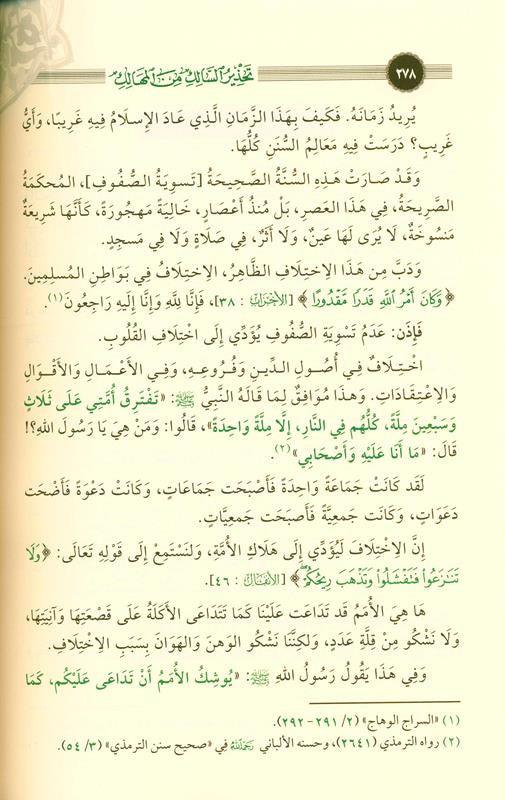 ٢٧٨
تَحْذِيرُ السَّالِكِ مِنَ المَهَالِكِ
يُرِيدُ زَمَانَهُ. فَكَيفَ بِهَذَا الزَّمَانِ الَّذِي عَادَ الإِسلَامُ فِيهِ غَرِيبًا، وَأَيُّ
غَرِيبٍ؟ دَرَسَتْ فِيهِ مَعَالِمُ السُّنَنِ كُلُّهَا.
وَقَدْ صَارَتْ هَذِهِ السُّنَّةُ الصَّحِيحَةُ [تَسوِيَةُ الصُّفُوفِ]، المُحكَمَةُ
الصَّرِيحَةُ، فِي هَذَا العَصرِ، بَلْ مُنذُ أَعْصَارٍ، خَالِيَةً مَهجُورَةً، كَأَنَّهَا شَرِيعَةٌ
مَنسُوخَةٌ، لَا يُرَى لَهَا عَينٌ، وَلَا أَثَرٌ، فِي صَلَاةٍ وَلَا فِي مَسجِدٍ.
وَدَبَّ مِن هَذَا الِاختِلَافِ الظَّاهِرُ، الِاختِلَافُ فِي بَوَاطِنِ المُسلِمِينَ.
﴿وَكَانَ أَمْرُ اللَّهِ قَدَرًا مَّقْدُورًا﴾ [الأحزاب : ٣٨]، فَإِنَّا لِلَّهِ وَإِنَّا إِلَيهِ رَاجِعُونَ(١).
فَإِذَن: عَدَمُ تَسْوِيَةِ الصُّفُوفِ يُؤَدِّي إِلَى اخْتِلَافِ القُلُوبِ.
اخْتِلَافٌ فِي أُصُولِ الدِّينِ وَفُرُوعِهِ، وَفِي الأَعْمَالِ وَالأَقْوَالِ
وَالِاعْتِقَادَاتِ. وَهَذَا مُوَافِقٌ لِمَا قَالَهُ النَّبِيُّ ﷺ: «تَفْتَرِقُ أُمَّتِي عَلَى ثَلَاثٍ
وَسَبْعِينَ مِلَّةً، كُلُّهُم فِي النَّارِ، إِلَّا مِلَّةً وَاحِدَةً»، قَالُوا: وَمَنْ هِيَ يَا رَسُولَ اللهِ؟!
قَالَ: «مَا أَنَا عَلَيْهِ وَأَصْحَابِي»(٢).
لَقَد كَانَتْ جَمَاعَةً وَاحِدَةً فَأَصْبَحَت جَمَاعَاتٍ، وَكَانَت دَعْوَةً فَأَضْحَت
دَعَوَاتٍ، وَكَانَت جَمعِيَّةً فَأَصبَحَت جَمعِيَّاتٍ.
إِنَّ الِاختِلَافَ لَيُؤَدِّي إِلَى هَلَاكِ الأُمَّةِ، وَلنَستَمِعْ إِلَى قَوْلِهِ تَعَالَى: ﴿وَلَا
تَنَازَعُوا فَتَفْشَلُوا وَتَذْهَبَ رِيحُكُمْ﴾ [الأنفال : ٤٦].
هَا هِيَ الأُمَمُ قَد تَدَاعَت عَلَيْنَا كَمَا تَتَدَاعَى الأَكَلَةُ عَلَى قَصْعَتِهَا وَآنِيَتِهَا،
وَلَا نَشْكُو مِنْ قِلَّةِ عَدَدٍ، وَلَكِنَّنَا نَشْكُو الوَهنَ وَالهَوَانَ بِسَبَبِ الِاختِلَافِ.
وَفِي هَذَا يَقُولُ رَسُولُ اللهِ ﷺ: «يُوشِكُ الأُمَمُ أَنْ تَدَاعَى عَلَيْكُم، كَمَا
(١) «السراج الوهاج» (٢/ ٢٩١-٢٩٢).
(٢) رواه الترمذي (٢٦٤١)، وحسنه الألباني رَحِمَهُ اللهُ في «صحيح سنن الترمذي» (٣/ ٥٤).